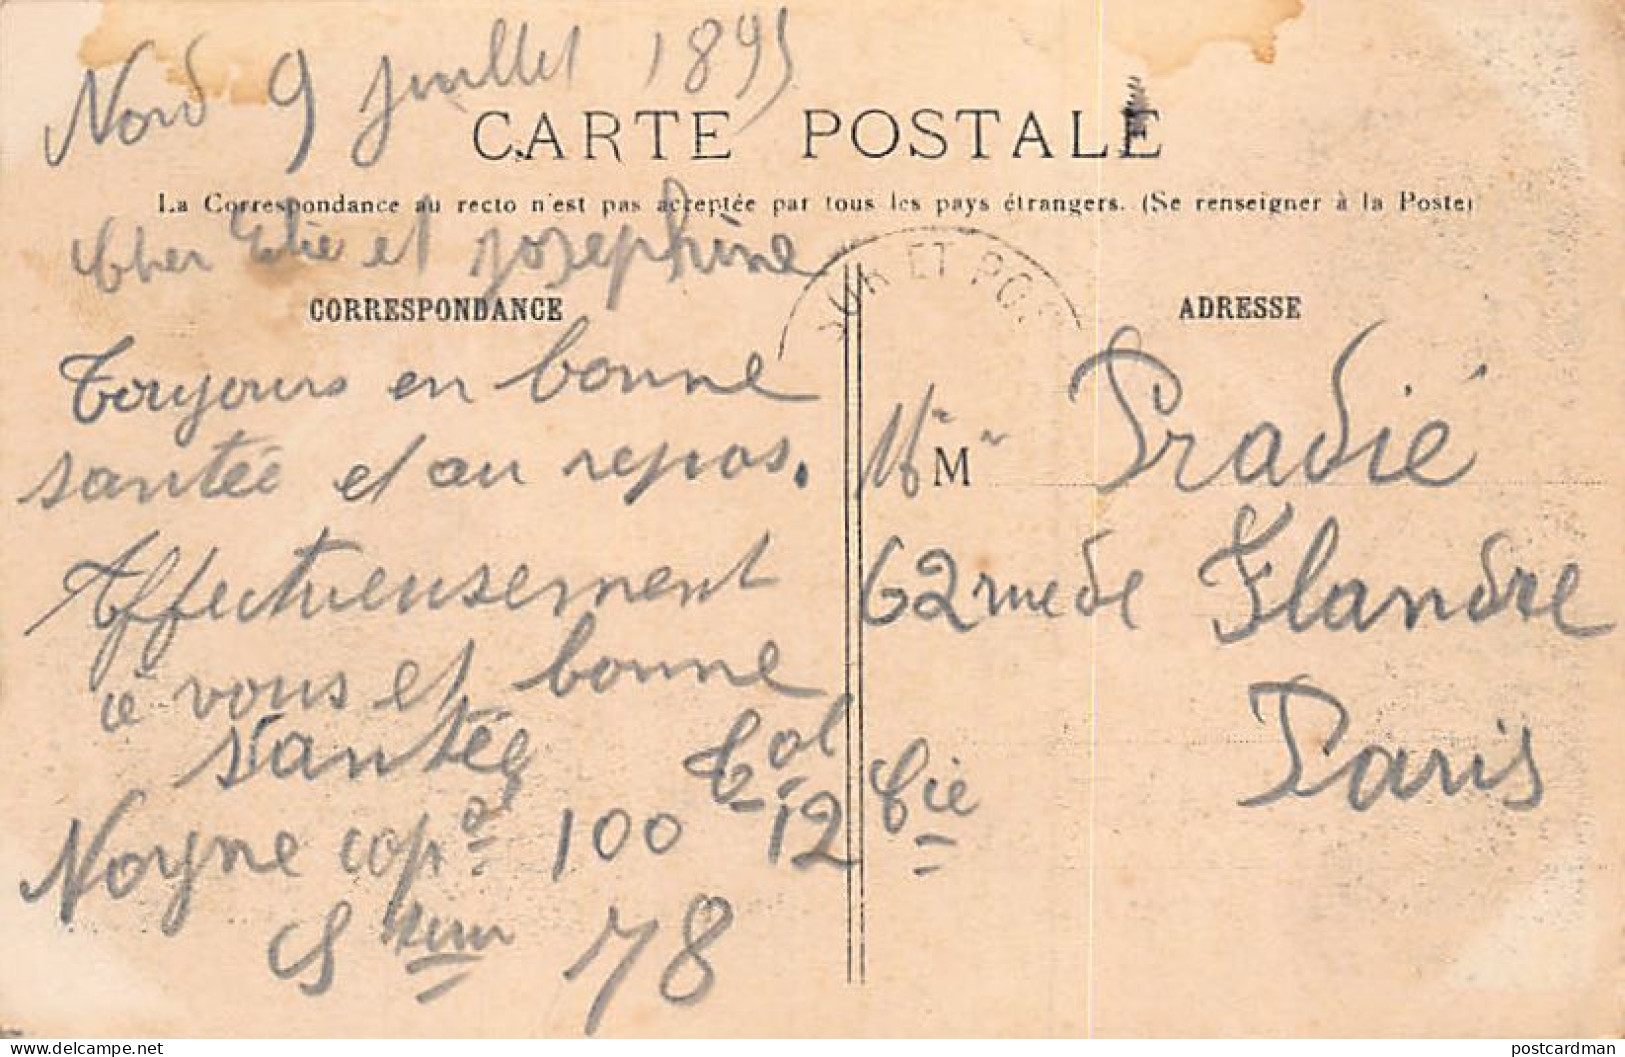 Nord 9 juillet 1895
CARTE POSTALE
La Correspondance au recto n'est pas acceptée par tous les pays étrangers. (Se renseigner à la Poste)
Cher Elie et Josephine
CORRESPONDANCE
Toujours en bonne
santée et au repos.
Affectueusement
à vous et bonne
santée
100 Col 12 Cie
Steur 78
OR ET POS
ADRESSE
Mr M Pradié
62 rue de Flandre
Paris
delcampe.net
postcardman